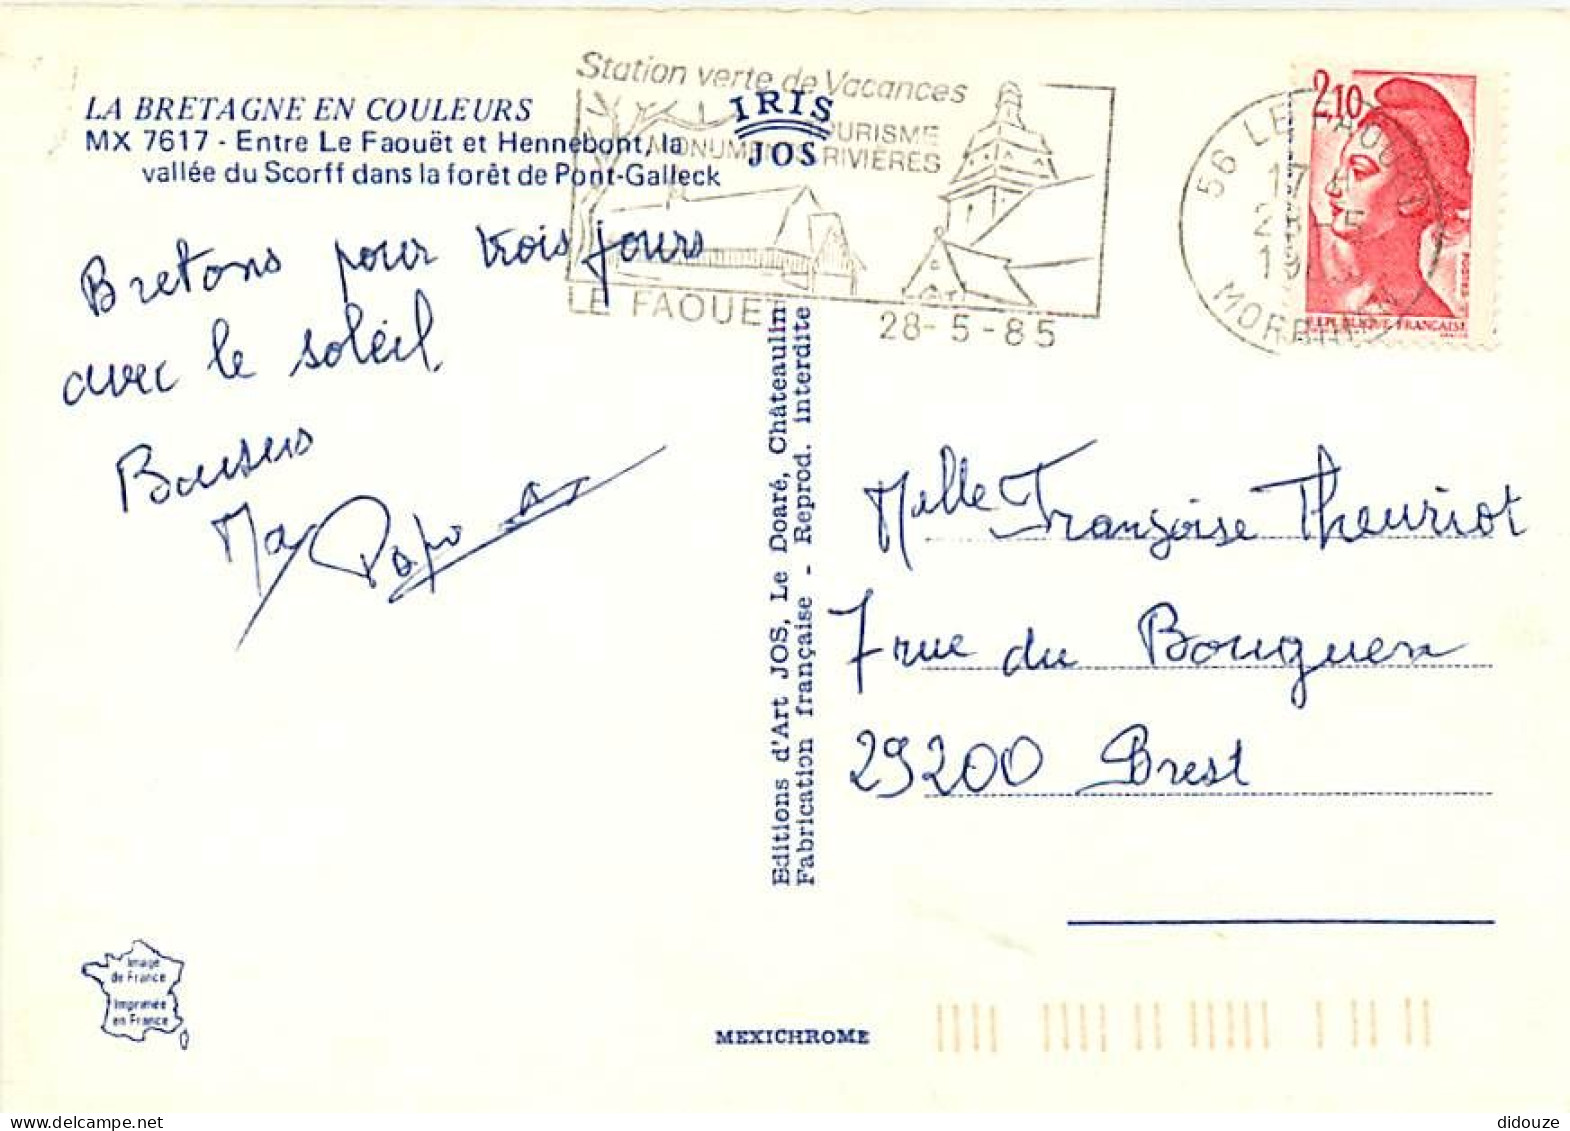 Station verte de Vacances
LA BRETAGNE EN COULEURS
MX 7617 - Entre Le Faouët et Hennebont, la
vallée du Scorff dans la forêt de Pont-Galleck
IRIS
JOS
TOURISME
MONUMENTS RIVIÈRES
LE FAOUET
28-5-85
56 LE FAOUET
17 H
MORBIHAN
2,10
POSTES
REPUBLIQUE FRANÇAISE
Bretons pour trois jours
avec le soleil
Baisers
Editions d'Art JOS, Le Doaré, Châteaulin
Fabrication française - Reprod. interdite
Melle Françoise Theuriot
7 rue du Bouguen
29200 Brest
Image
de France
Imprimée
en France
MEXICHROME
didouze